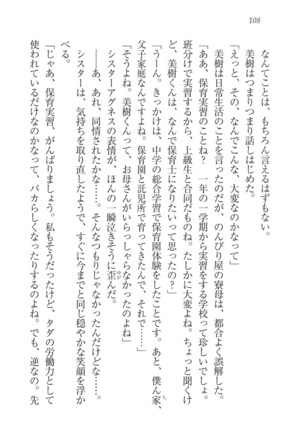 108
なんてことは、もちろん言えるはずもない。
美樹はつまりつまり話しはじめた。
「えっと、その、なんでこんな、大変なのかなって」
美樹は日常生活のことを言ったのだが、のんびり屋の寮母は、都合よく誤解した。
「ああ、保育実習のことね？　一年の一学期から実習をする学校って珍しいでしょ。
班分けで実習するから、上級生と合同だものね。たしかに大変よね。ちょっと聞くけ
ど、美樹くんは、なんで保育士になりたいって思ったの？」
「うーん。きっかけは、中学の総合学習で保育園体験をしたことです。あと、僕ん家、
父子家庭なんですけど、保育園と託児所で育ってきたんで、それで……」
「そうよね。美樹くんって、お母さんがいらっしゃらなかったのよね」
シスターアグネスの表情が、ほんの一瞬泣きそうに歪んだ。
――あ、あれ、同情されたかな……。そんなつもりじゃなかったんだけどな……。
シスターは、気持ちを取り直したようで、すぐに今までと同じ穏やかな笑顔を浮か
べる。
「じゃあ、保育実習、がんばりましょう。私もそうだったけど、タダの労働力として
使われているだけなのかなって、バカらしくなったりするのよね。でも、逆なの。先